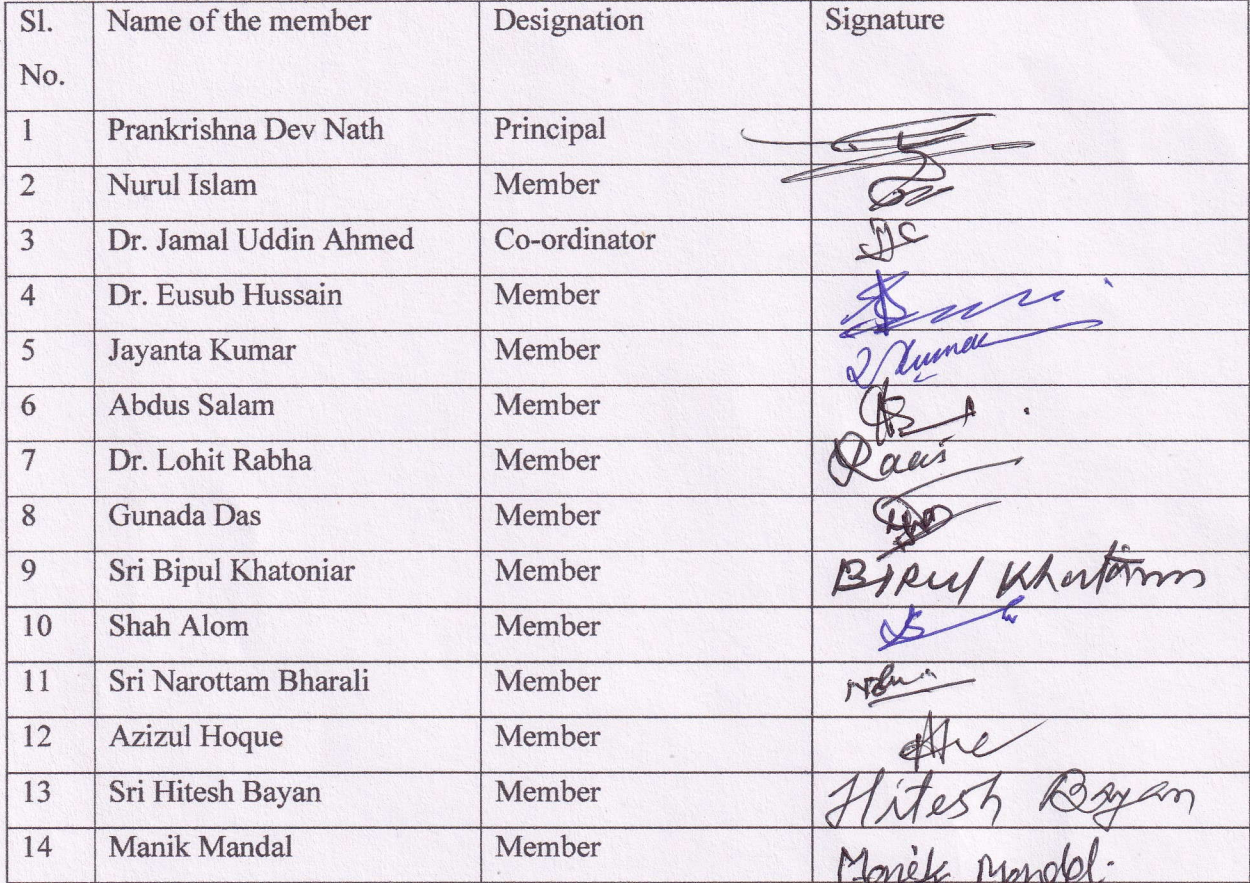 Sl. No. Name of the member Designation Signature
1 Prankrishna Dev Nath Principal
2 Nurul Islam Member
3 Dr. Jamal Uddin Ahmed Co-ordinator
4 Dr. Eusub Hussain Member
5 Jayanta Kumar Member Kumar
6 Abdus Salam Member
7 Dr. Lohit Rabha Member
8 Gunada Das Member
9 Sri Bipul Khatoniar Member Bipul Khatoniar
10 Shah Alom Member
11 Sri Narottam Bharali Member
12 Azizul Hoque Member
13 Sri Hitesh Bayan Member Hitesh Bayan
14 Manik Mandal Member Manik Mandal.